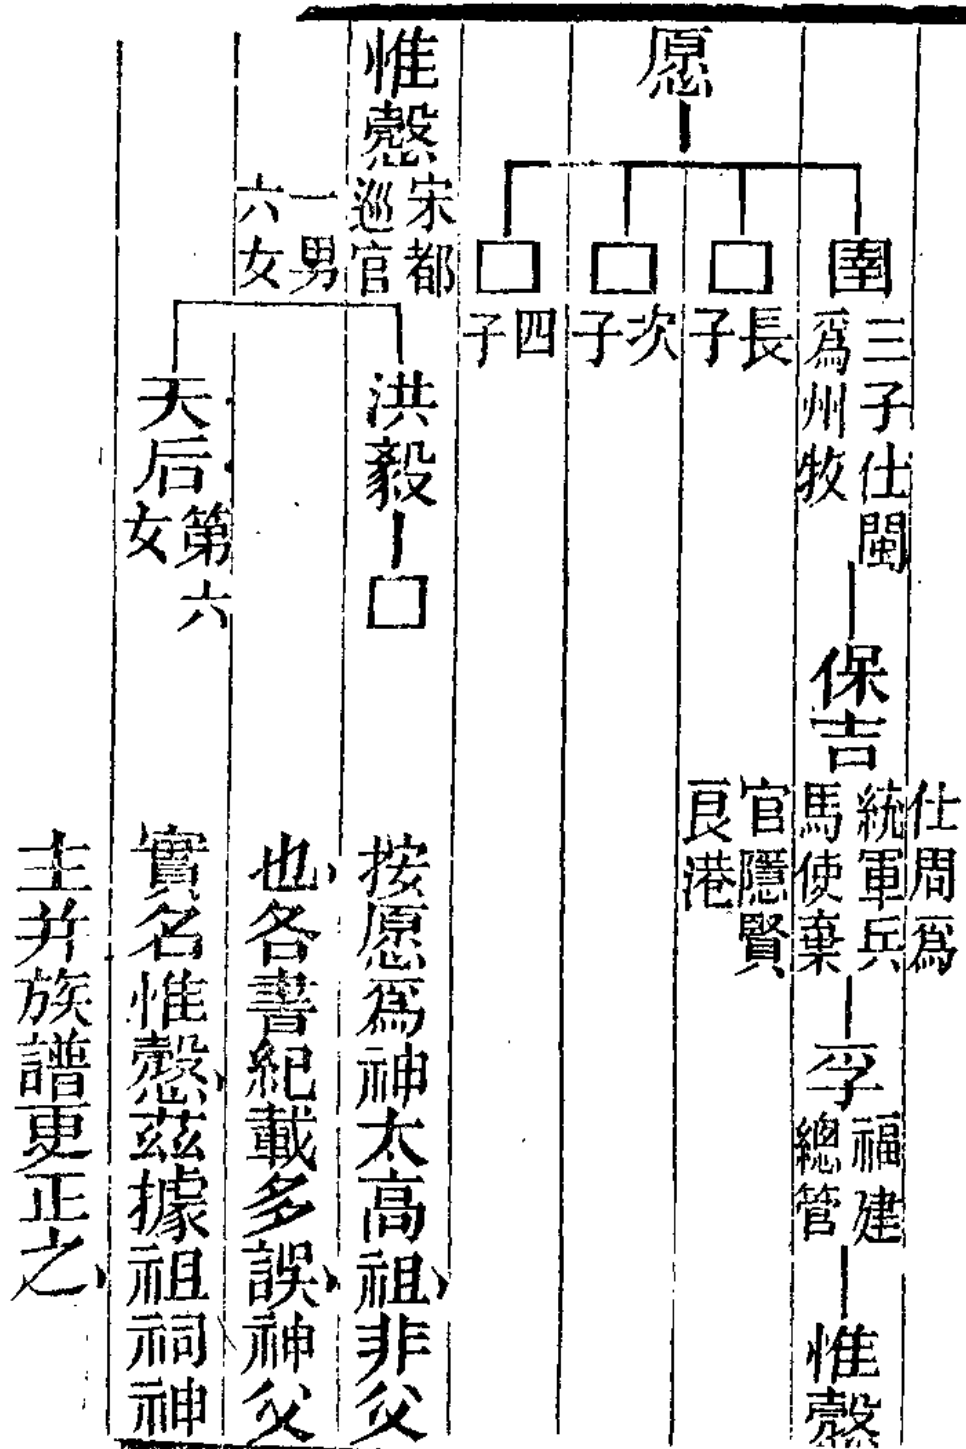 愿
圉
三子仕閩
爲州牧
保吉
仕周爲
統軍兵
馬使棄
官隱賢
良港
孚
福建
總管
惟慤
長
子
次
子
四
子
惟慤
宋都
巡官
一男
六女
洪毅
天后
第六
女
按愿爲神太高祖非父
也各書紀載多誤神父
實名惟慤茲據祖祠神
主并族譜更正之